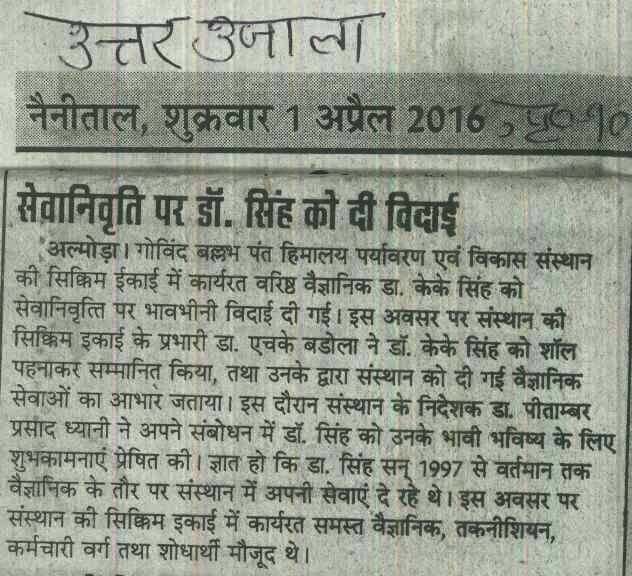 उत्तर उजाला
नैनीताल, शुक्रवार 1 अप्रैल 2016, पृ० १०
सेवानिवृति पर डॉ. सिंह को दी विदाई
अल्मोड़ा। गोविंद बल्लभ पंत हिमालय पर्यावरण एवं विकास संस्थान
की सिक्किम ईकाई में कार्यरत वरिष्ठ वैज्ञानिक डा. केके सिंह को
सेवानिवृत्ति पर भावभीनी विदाई दी गई। इस अवसर पर संस्थान की
सिक्किम इकाई के प्रभारी डा. एचके बडोला ने डॉ. केके सिंह को शॉल
पहनाकर सम्मानित किया, तथा उनके द्वारा संस्थान को दी गई वैज्ञानिक
सेवाओं का आभार जताया। इस दौरान संस्थान के निदेशक डा. पीताम्बर
प्रसाद ध्यानी ने अपने संबोधन में डॉ. सिंह को उनके भावी भविष्य के लिए
शुभकामनाएं प्रेषित की। ज्ञात हो कि डा. सिंह सन् 1997 से वर्तमान तक
वैज्ञानिक के तौर पर संस्थान में अपनी सेवाएं दे रहे थे। इस अवसर पर
संस्थान की सिक्किम इकाई में कार्यरत समस्त वैज्ञानिक, तकनीशियन,
कर्मचारी वर्ग तथा शोधार्थी मौजूद थे।